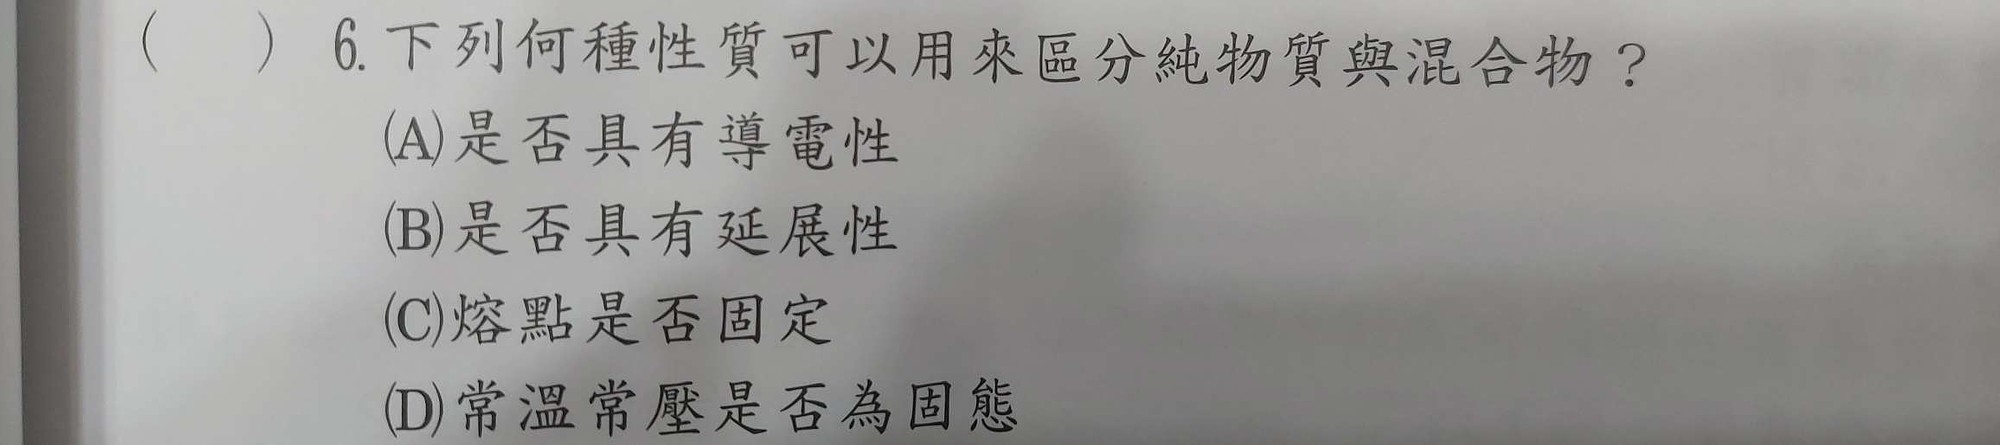 (　) 6.下列何種性質可以用來區分純物質與混合物？
(A)是否具有導電性
(B)是否具有延展性
(C)熔點是否固定
(D)常溫常壓是否為固態